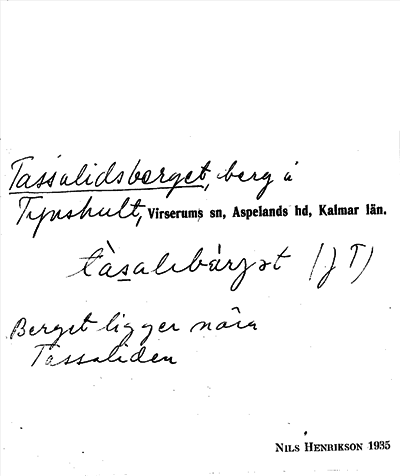 Tassalidsberget, berg å
Tynshult, Virserums sn, Aspelands hd, Kalmar län.
tàsalıbárjət (J T)
Berget ligger nära
Tassaliden
NILS HENRIKSON 1935